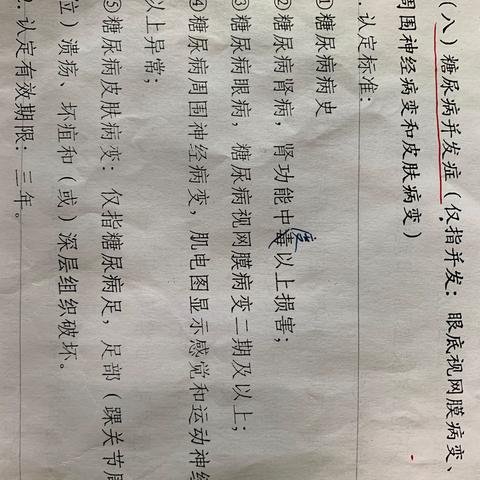 (八)糖尿病并发症(仅指并发:眼底视网膜病变、
周围神经病变和皮肤病变)
.认定标准:
①糖尿病病史
②糖尿病肾病,肾功能中度以上损害;
③糖尿病眼病,糖尿病视网膜病变二期及以上;
④糖尿病周围神经病变,肌电图显示感觉和运动神经
以上异常;
⑤糖尿病皮肤病变:仅指糖尿病足,足部(踝关节周
位)溃疡、坏疽和(或)深层组织破坏。
.认定有效期限:三年。